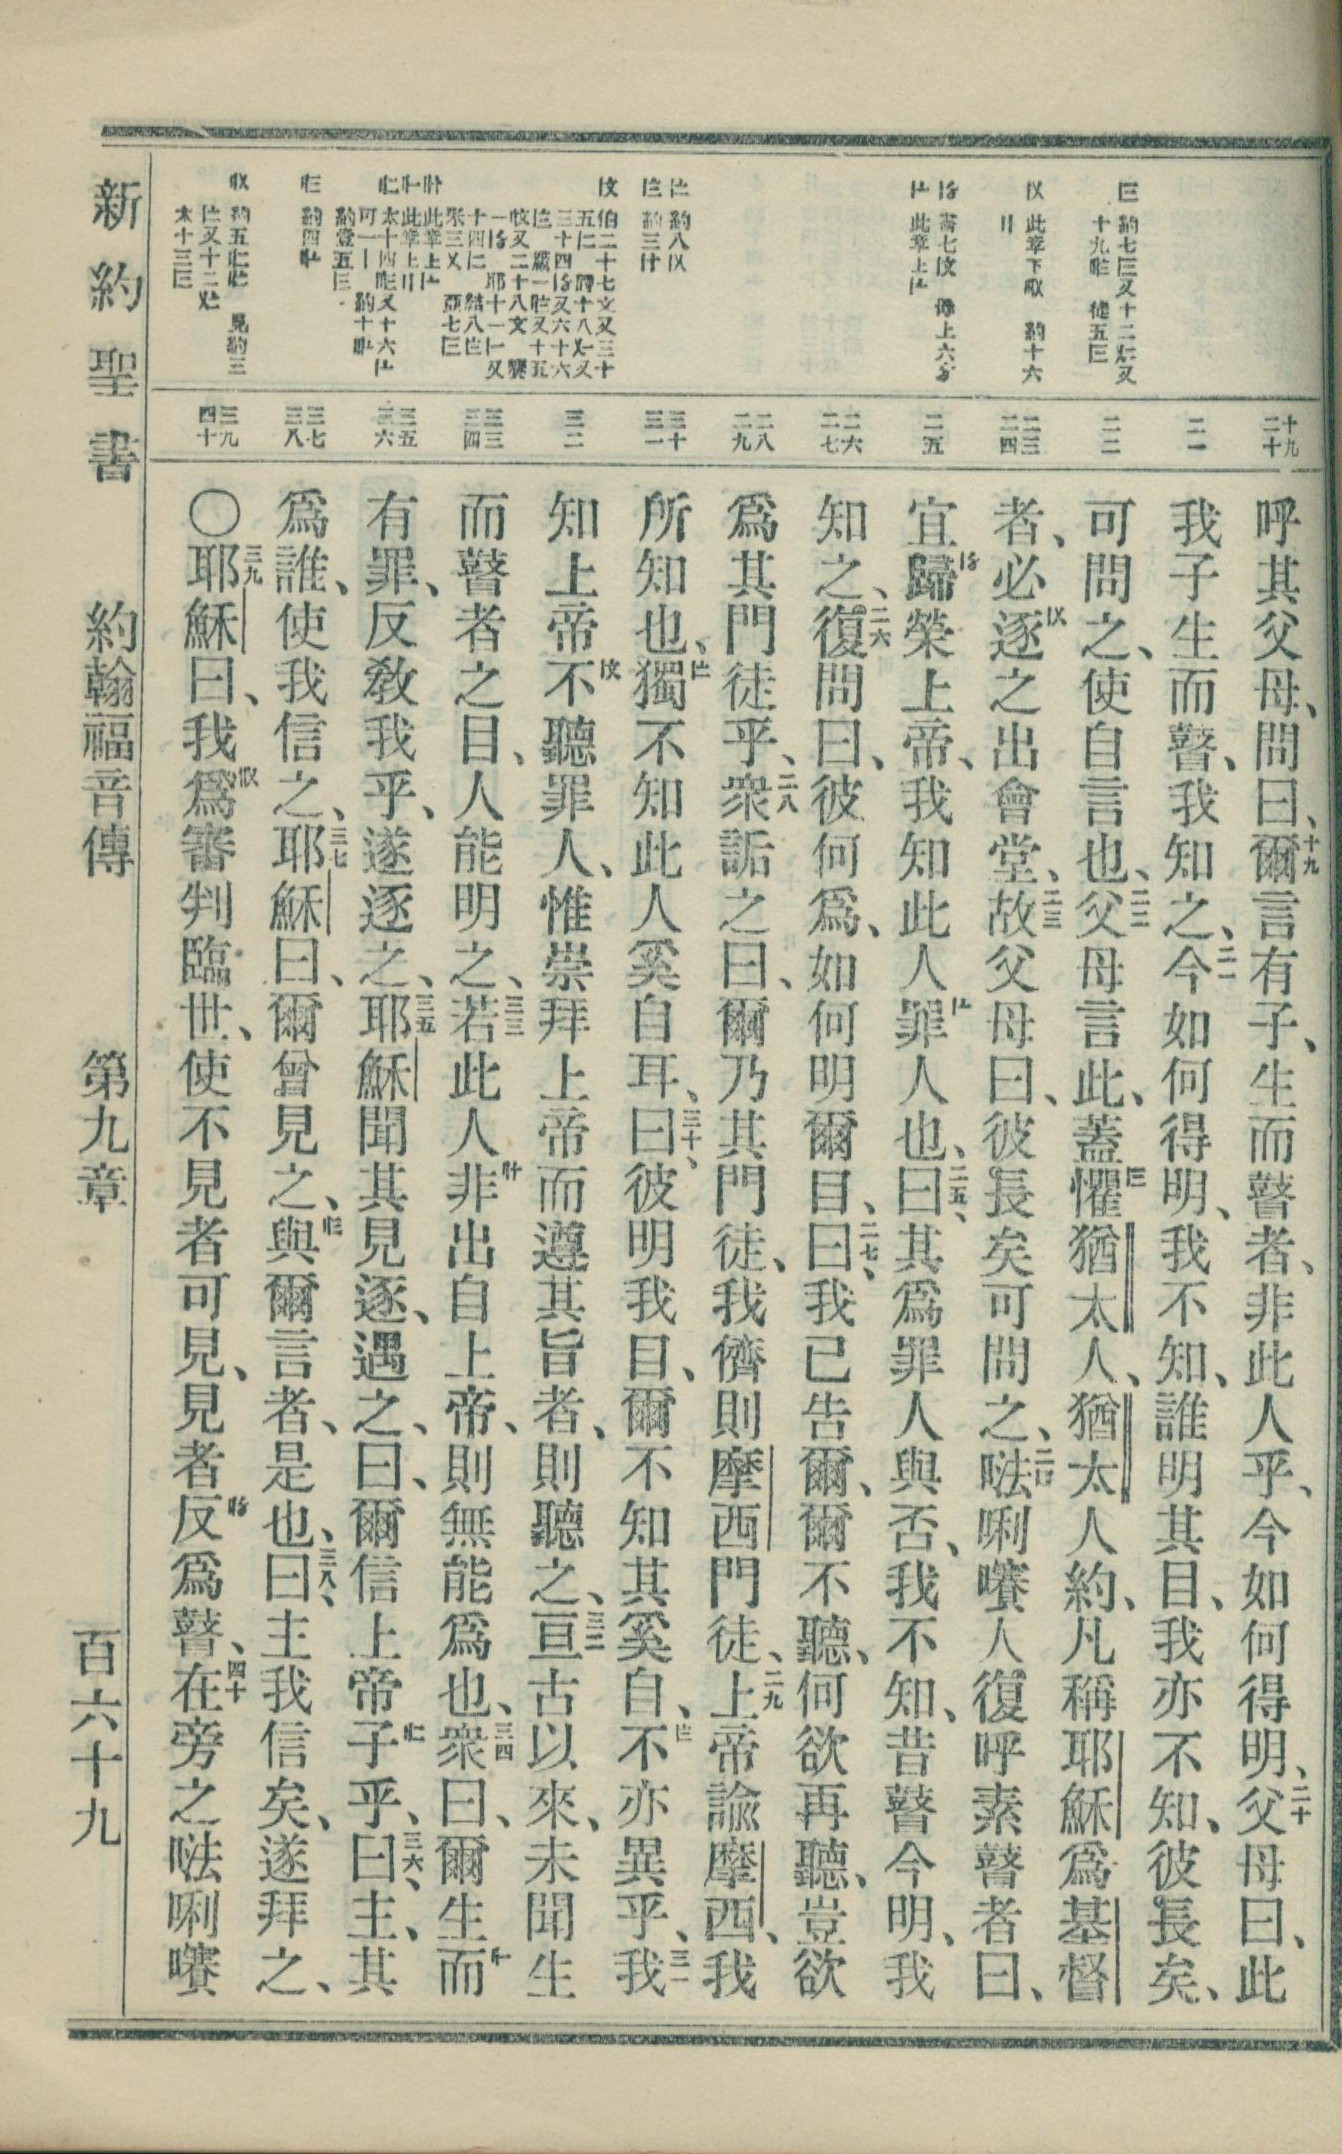 呼其父母、問曰、十九爾言有子、生而瞽者、非此人乎、今如何得明、二十父母曰、此
我子生而瞽、我知之、二一今如何得明、我不知、誰明其目、我亦不知、彼長矣、
可問之、使自言也、二二父母言此、蓋懼猶太人、猶太人約、凡稱耶穌爲基督
者、必逐之出會堂、二三故父母曰、彼長矣可問之、二四㗒唎㘔人復呼素瞽者曰、
宜歸榮上帝、我知此人罪人也、二五曰、其爲罪人與否、我不知、昔瞽今明、我
知之、二六復問曰、彼何爲、如何明爾目、二七曰、我已告爾、爾不聽、何欲再聽、豈欲
爲其門徒乎、二八衆詬之曰、爾乃其門徒、我儕則摩西門徒、二九上帝諭摩西、我
所知也、獨不知此人奚自耳、三十曰、彼明我目、爾不知其奚自、不亦異乎、三一我
知上帝不聽罪人、惟崇拜上帝而遵其旨者、則聽之、三二亘古以來、未聞生
而瞽者之目、人能明之、三三若此人非出自上帝、則無能爲也、三四衆曰、爾生而
有罪、反教我乎、遂逐之、三五耶穌聞其見逐、遇之、曰、爾信上帝子乎、三六曰、主、其
爲誰、使我信之、三七耶穌曰、爾曾見之、與爾言者、是也、三八曰、主我信矣、遂拜之、
○三九耶穌曰、我爲審判臨世、使不見者可見、見者反爲瞽、四十在旁之㗒唎㘔
新約聖書 約翰福音傳 第九章 百六十九